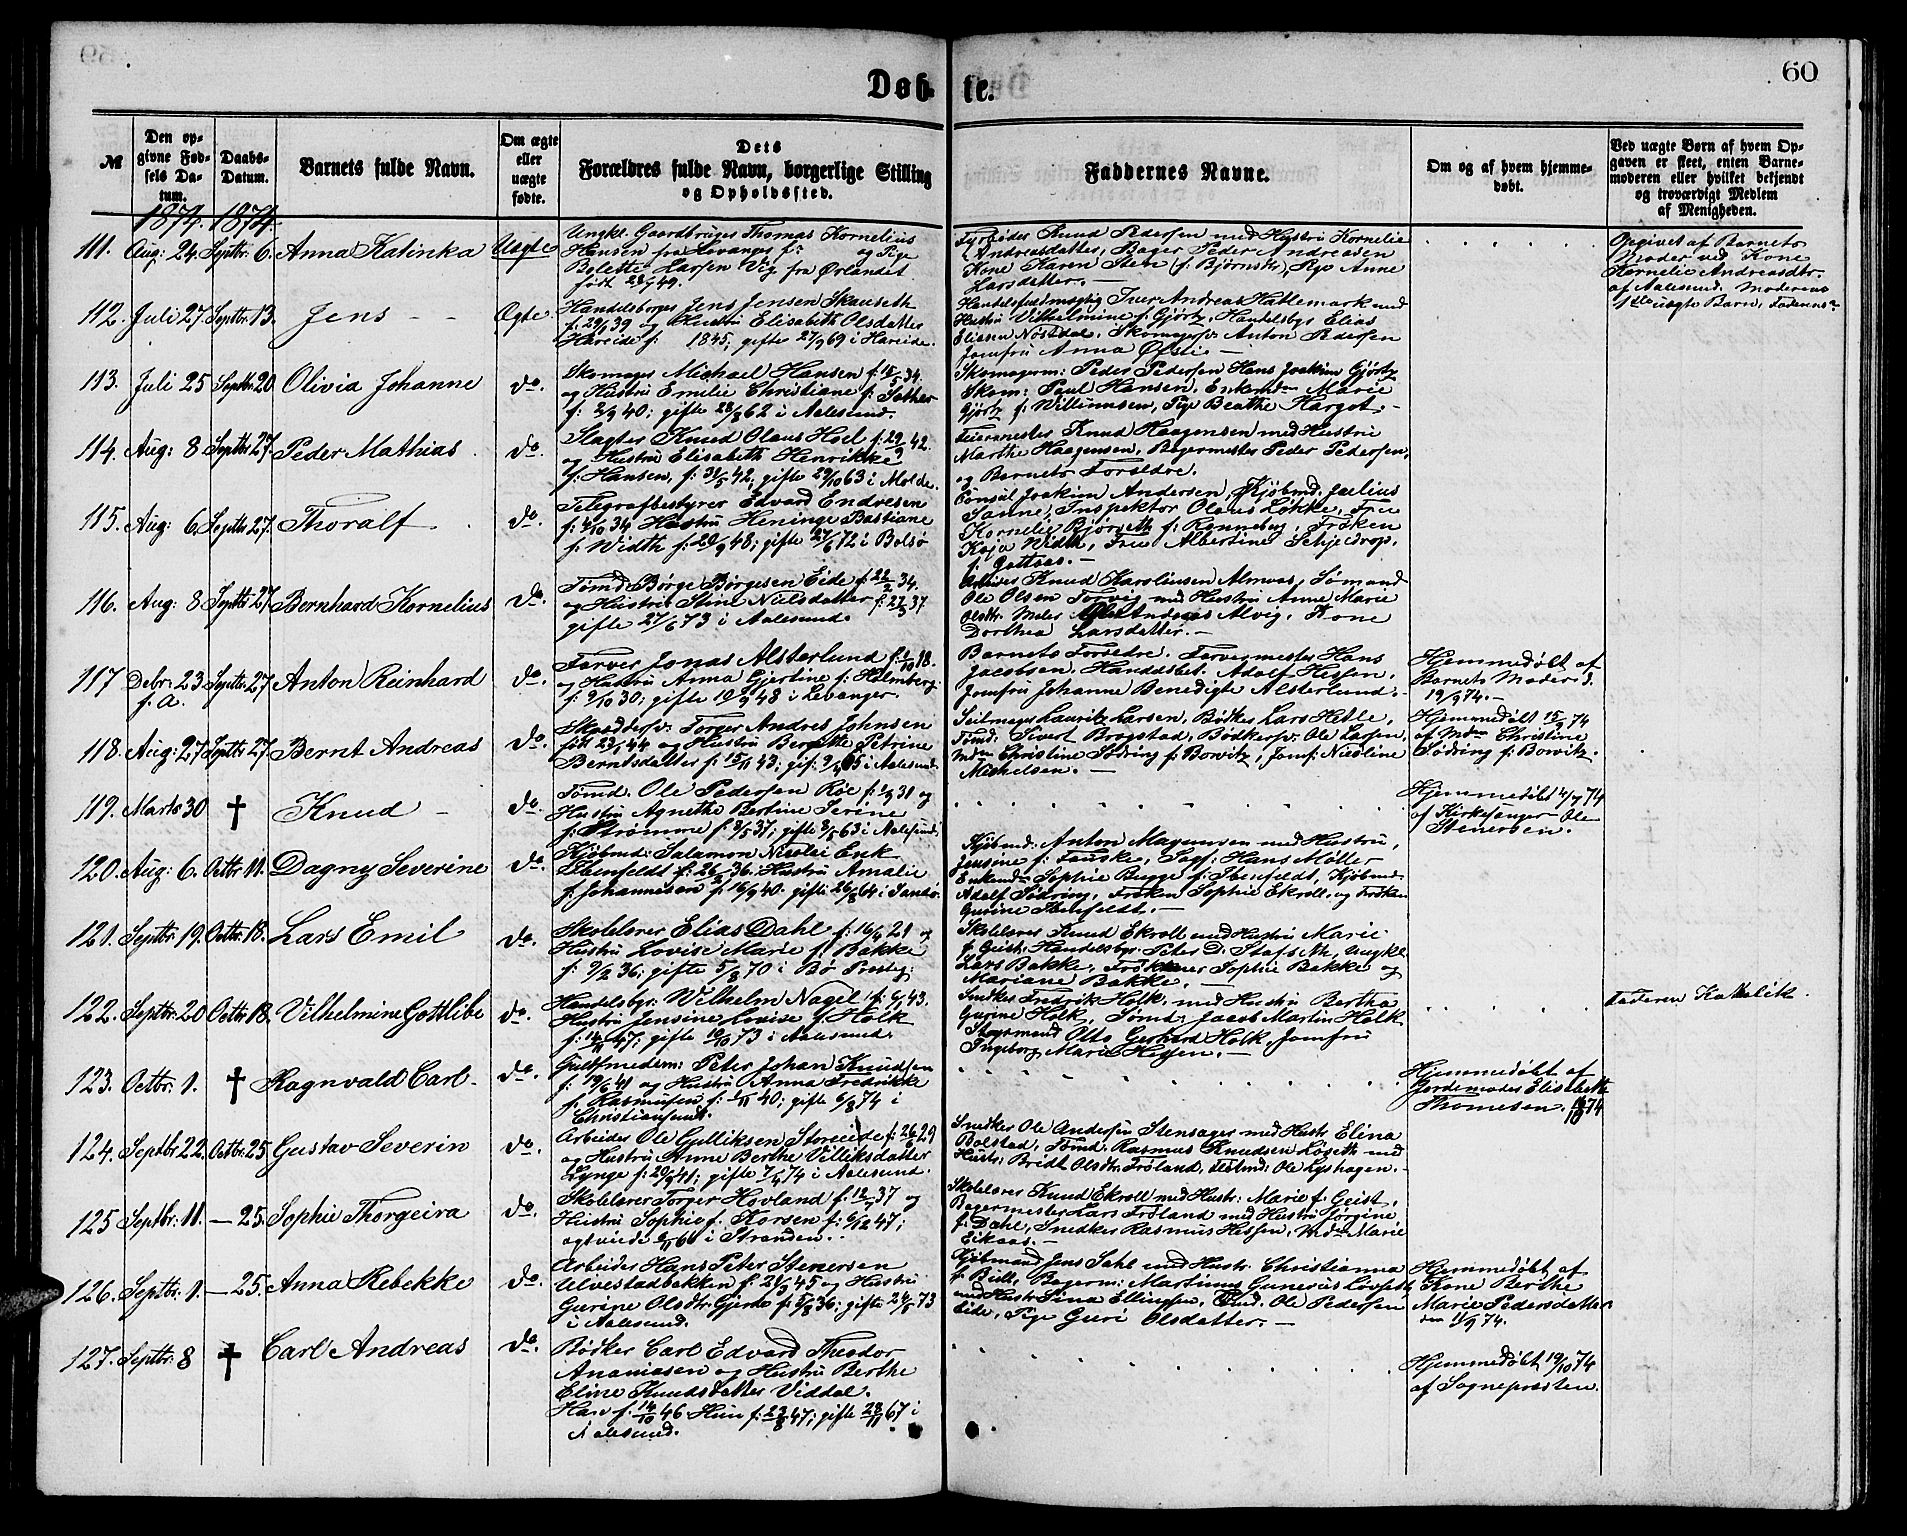 60
Døb- te.
№
Den op-
givne Fød-
sels Da-
tum.
Daabs-
Datum.
Barnets fulde Navn.
Om ægte
eller
uægte
fødte.
Dets
Forældres fulde Navn, borgerlige Stilling
og Opholdssted.
Faddernes Navne.
Om og af hvem hjemme-
døbt.
Ved uægte Børn af hvem Op-
gaven er skeet, enten Barne-
moderen eller hvilket bekjendt
og troværdigt Medlem
af Menigheden.
1874. 1874.
111. Aug: 24. Septbr: 6. Anna Katinka Uægte
Ungkl. Gaardbruger Thomas Kornelius
Hansen fra Levanger og Pige
Bolette Larsen Vig fra Ørlandet
født 49.
Peder Knud Pedersen med Hustru Kornelie
Andreasdatter, Bager Peder Andreasen
Kone Karen Sten (f. Bjørnstr), Pige Anne
Larsdatter. —
Opgivet af Barnets
Moder ved Kone
Kornelie Andreasdtr.
af Aalesund. Moderens
1ste uægte Barn, Faderens
112. Juli 27. Septbr. 13. Jens - - Ægte.
Handelsborger Jens Jensen Skauseth
f. 29/39 og Hustru Elisabeth Olsdatter
Hareide f: 1845, gifte 27/9 69 i Hareide.
Handelsfuldmægtig Iver Andreas Hatlemark med
Hustru Vilhelmine f. Gjørtz, Handelsbgr Elias
Eliasen Nøstdal, Skomagersv. Anton Pedersen
Jomfru Anna Øfsti. —
113. Juli 25 Septbr 20. Olivia Johanne do.
Skomager Michael Hansen f. 34,
og Hustru Emilie Christiane f. Sother
f: 2/9 40; gifte 28/8 62 i Aalesund.
Skomagerm: Peder Pedersen Hans Joachim Gjørtz
Skom: Paul Hansen, Enkemdm Marie
Gjørtz f: Willumsen, Pige Beathe Harget. -
114. Aug: 8 Septbr 27. Peder Mathias do.
Slagter Knud Olaus Hoel f: 42.
og Hustru Elisabeth Henrikke
f. Hansen, f: 31/5 42, gifte 29/10 63 i Molde.
Feiermester Knud Haagensen med Hustru
Marthe Haagensen, Bagermester Peder Pedersen,
og Barnets Forældre.
115. Aug: 6. Septbr 27. Thoralf do.
Telegrafbestyrer Edvard Endresen
f: 4/10 34 Hustru Heninge Bastiane
f: Width f: 20/9 48; gifte 27/6 72 i Bolsø
Consul Joakim Andersen, Kjøbmd: Julius
Sanne, Inspektor Olaus Løkke, Frue
Kornelie Bjørseth f: Rønneberg, Frøken
Kaja Width, Frue Albertine Schjedrop,
f. Gottaas. —
116. Aug: 8 Septbr 27 Bernhard Kornelius do.
Tømd Børge Børgesen Eide f: 22/2 34.
og Hustru Stine Nielsdatter f: 27/3 37
gifte 27/6 73 i Aalesund.
Arbeider Knud Karolinsen Almaas, Sømand
Ole Olsen Torvig med Hustru Anne Marie
Olsdtr: Maler Ole Andreas Alvig, Kone
Dorthea Larsdatter. —
117 Debr: 23 f. A. Septbr: 27. Anton Reinhard do.
Farver Jonas Alsterlund f: 18.
og Hustru Anna Gjertine f: Holmberg
f: 9/10 30; gifte 10/9 48 i Levanger.
Barnets Forældre. Farvermester Hans
Jacobsen, Handelsbet. Adolf Hessen,
Jomfru Johanne Benedigte Alsterlund. -
Hjemmedøbt af
Barnets Moder d.
19/9 74. —
118. Aug: 27 Septbr 27. Bernt Andreas do.
Skræddersv: Torger Andres Johnsen
født 23/ 44 og Hustru Bergitte Petrine
Berntsdatter f: 13/11 43; gif: 9/ 65 i Aalesund
Seilmager Lauritz Larsen, Bødker Lars Hetle,
Tømd. Sivert Brogstad, Bødkersv: Ole Larsen,
Mdm Christine Sødring f: Bowitz, Jomf: Nicoline
Michelsen. —
Hjemmedøbt 15/9 74
af Mdm Christine
Sødring f: Bowitz.
119. Marts 30 † Knud - do.
Tømd. Ole Pedersen Røe f: 31 og
Hustru Agnethe Bertine Serine
f: Strømme f: 9/5 37; gifte 63 i Aalesund
Hjemmedøbt 4/ 74
af Kirkesanger Ole
Stenersen.
120. Aug: 6. Octbr 11. Dagny Severine do.
Kjøbmd: Salamon Nicolai Enk
Ibenfeldt f: 26/2 36; Hustru Amalie
f. Johannesen f: 16/9 40. gifte 26/8 64 i Sandø.
Kjøbmd: Anton Magensen med Hustru,
Jensine f: Fauske, Sagf: Hans Møller
Enkemdm Sophie Bugge f: Ibenfeldt, Kjøbmd:
Adolf Sødring, Frøken Sophie Ekroll, og Frøken
Gurine Ibenfeldt. —
121. Septbr: 19. Octbr: 18. Lars Emil do.
Skolelærer Elias Dahl f: 16/4 21 og
Hustru Lovise Marie f. Bakke
f: 9/2 36; gifte 5/8 70 i Bø Prstg:
Skolelærer Knud Ekroll med Hustru Marie
f. Geist, Handelsbgr. Peter D. Stafseth, Ungkl
Lars Bakke, Frøkener Sophie Bakke og
Mariane Bakke. —
122. Septbr: 20 Octbr: 18. Vilhelmine Gottlibe do.
Handelsbgr: Wilhelm Nagel f: 43.
Hustru Jensine Lovise f. Holk
f: 14/11 47; gifte 19/10 73 i Aalesund.
Snedker Fredrik Holk, med Hustru Bertha
Gurine Holk, Tømd: Jacob Martin Holk
Styrmand Otto Gerhard Holk, Jomfru
Ingeborg Marie Hessen. —
Faderen Katholik.
123. Octbr: 1. † Ragnvald Carl - do.
Guldsmedem: Peter Johan Knudsen
f: 19/6 41 og Hustru Anna Fredrikke
f. Rasmusen f: 1/11 40; gifte 6/8 74 i
Christiansund.
Hjemmedøbt af
Jordemoder Elisabeth
Thomesen. 74
124. Septbr 22. Octbr. 25 Gustav Severin do.
Arbeider Ole Gulliksen Storeide f: 26/6 29
og Hustru Anne Berthe Villiksdatter
Lynge f: 20/9 41; gifte 7/4 74 i Aalesund.
Snedker Ole Andersen Stensager med Hustr: Elina
Bolstad, Tømd: Rasmus Knudsen Løseth med
Hustr: Bridt Olsdtr: Frøland, Testmd: Ole Lyshagen. -
125 Septbr: 11. — 25. Sophie Thorgeira do.
Skolelærer Torger Hovland f: 12/ 37 og
Hustru Sophie f. Korsen f: 6/12 47;
ægteviede 6/11 66 i Stranden. .
Skolelærer Knud Ekroll med Hustr: Marie f. Geist,
Bagermester Lars Frøland med Hustru Jørgine
f: Dahl, Snedker Rasmus Hessen, Mdm Marie
Eikaas. —
126. Septbr: 1. — 25. Anna Rebekke do.
Arbeider Hans Peter Stenersen
Ulvestadbakken f: 21/3 45 og Hustru
Gurine Olsdtr: Gjerde f: 5/8 36; gifte 24/5 73
i Aalesund.
Kjøbmand Jens Dahl med Hustr: Christianna
f. Budt, Bagerm: Martinus Gunerius Lovseth
med Hustr: Sina Ellingsen, Tømd. Ole Pedersen
Eide, Pige Guri Olsdatter. —
Hjemmedøbt af
Kone Berthe
Marie Pedersdatter
den 1/9 74.
127. Septbr: 8 † Carl Andreas do.
Bødker Carl Edvard Theodor
Ananiasen og Hustru Berthe
Eline Knudsdatter Viddal.
Han f. 14/10 46. Hun f: 23/8 47; gifte 28/11 67 i
Aalesund.
Hjemmedøbt 19/10 74
af Sognepresten.